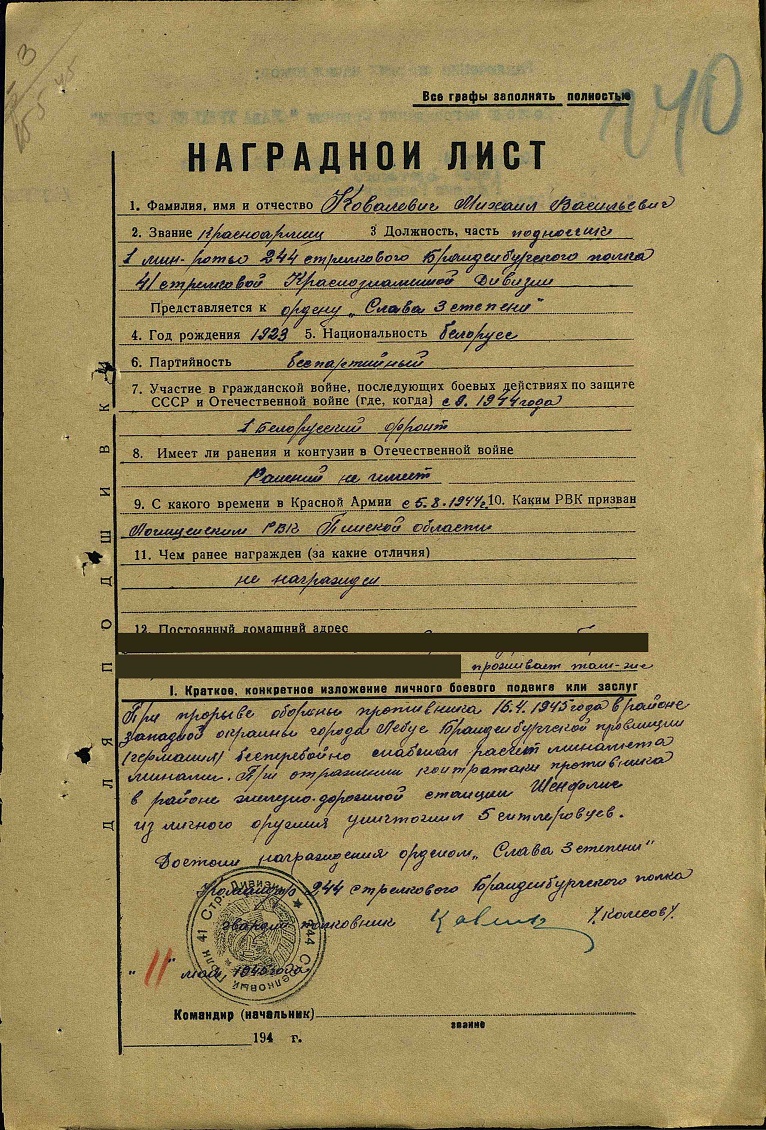 3
5 5 45
240
Все графы заполнять полностью
НАГРАДНОЙ ЛИСТ
1. Фамилия, имя и отчество Ковалевич Михаил Васильевич
2. Звание Красноармеец 3 Должность, часть подносчик
1 мин-роты 244 стрелкового Бранденбургского полка
41 стрелковой Краснознаменной Дивизии
Представляется к ордену „Слава 3 степени"
4. Год рождения 1923 5. Национальность белорус
6. Партийность беспартийный
7. Участие в гражданской войне, последующих боевых действиях по защите
СССР и Отечественной войне (где, когда) с 9. 1944 года
1 Белорусский фронт
8. Имеет ли ранения и контузии в Отечественной войне
Ранений не имеет
9. С какого времени в Красной Армии с 5.8.1944г. 10. Каким РВК призван
РВК Пинской области
11. Чем ранее награжден (за какие отличия)
не награжден
12. Постоянный домашний адрес
проживает там-же
I. Краткое, конкретное изложение личного боевого подвига или заслуг
При прорыве обороны противника 16.4.1945 года в районе
западной окраины города Лебус Бранденбургской провинции
(германия) бесперебойно снабжал расчет миномета
минами. При отражении контратаки противника
в районе железно-дорожной станции Шенфлис
из личного оружия уничтожил 5 гитлеровцев.
Достоин награждения орденом „Слава 3 степени"
Командир 244 стрелкового Бранденбургского полка
гвардии полковник /Колесов/
"11" май 1945 года
244 Стрелковый Полк 41 Стр. Дивизии
Командир (начальник)
звание
194 г.
ДЛЯ ПОДШИВКИ